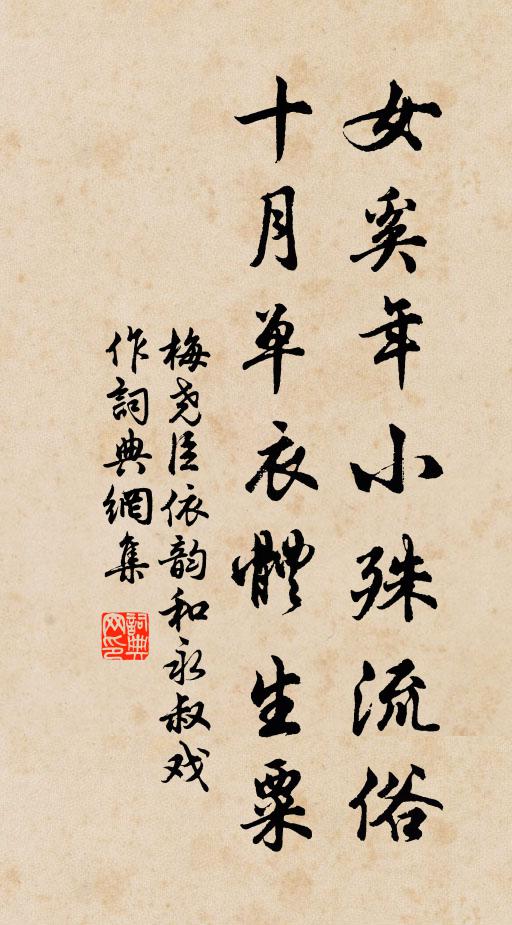 女奚年小殊流俗
十月单衣體生粟
梅尧臣依韵和永叔戏
作詞典網集
詞典网印